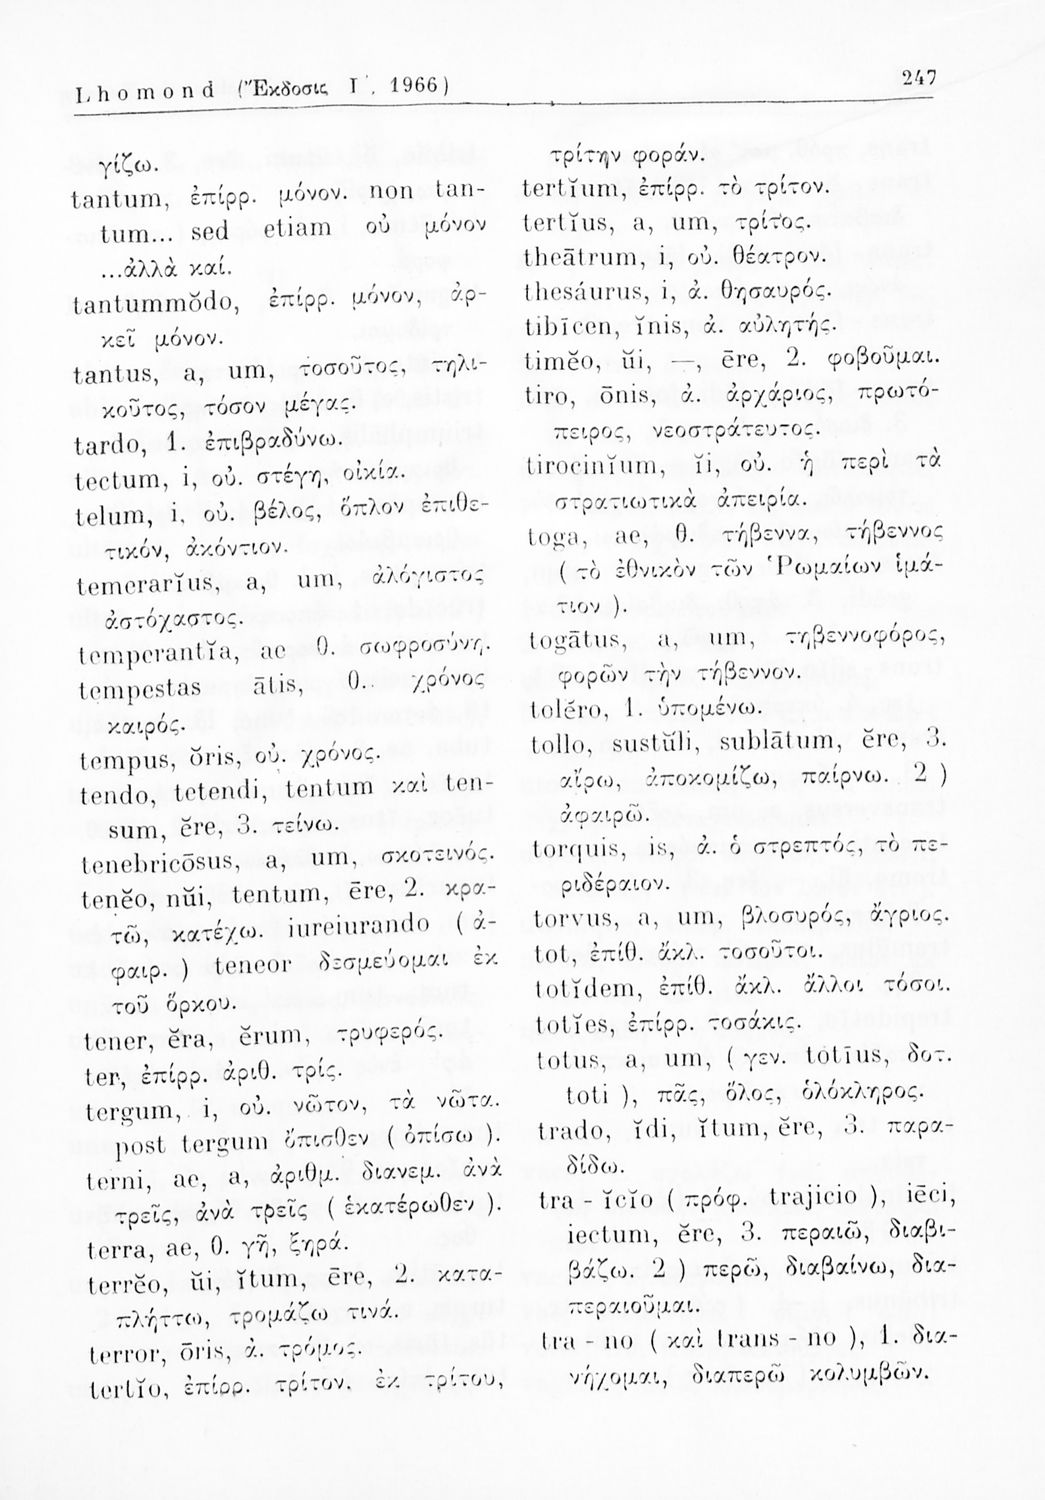 Lhomond (Ἔκδοσις Γ΄, 1966)
247
γίζω.
tantum, ἐπίρρ. μόνον. non tan-
tum... sed etiam οὐ μόνον
...ἀλλὰ καί.
tantummŏdo, ἐπίρρ. μόνον, ἀρ-
κεῖ μόνον.
tantus, a, um, τοσοῦτος, τηλι-
κοῦτος, τόσον μέγας.
tardo, 1. ἐπιβραδύνω.
tectum, i, οὐ. στέγη, οἰκία.
telum, i, οὐ. βέλος, ὅπλον ἐπιθε-
τικόν, ἀκόντιον.
temerarĭus, a, um, ἀλόγιστος
ἀστόχαστος.
temperantĭa, ae θ. σωφροσύνη.
tempestas ātis, θ. χρόνος
καιρός.
tempus, ŏris, οὐ. χρόνος.
tendo, tetendi, tentum καὶ ten-
sum, ĕre, 3. τείνω.
tenebricōsus, a, um, σκοτεινός.
tenĕo, nŭi, tentum, ēre, 2. κρα-
τῶ, κατέχω. iureiurando ( ἀ-
φαιρ. ) teneor δεσμεύομαι ἐκ
τοῦ ὅρκου.
tener, ĕra, ĕrum, τρυφερός.
ter, ἐπίρρ. ἀριθ. τρίς.
tergum, i, οὐ. νῶτον, τὰ νῶτα.
post tergum ὄπισθεν ( ὀπίσω ).
terni, ae, a, ἀριθμ. διανεμ. ἀνὰ
τρεῖς, ἀνὰ τρεῖς ( ἑκατέρωθεν ).
terra, ae, θ. γῆ, ξηρά.
terrĕo, ŭi, ĭtum, ēre, 2. κατα-
πλήττω, τρομάζω τινά.
terror, ōris, ἀ. τρόμος.
tertĭo, ἐπίρρ. τρίτον, ἐκ τρίτου,
τρίτην φοράν.
tertĭum, ἐπίρρ. τὸ τρίτον.
tertĭus, a, um, τρίτος.
theātrum, i, οὐ. θέατρον.
thesáurus, i, ἀ. θησαυρός.
tibīcen, ĭnis, ἀ. αὐλητής.
timĕo, ŭi, —, ēre, 2. φοβοῦμαι.
tiro, ōnis, ἀ. ἀρχάριος, πρωτό-
πειρος, νεοστράτευτος.
tirocinĭum, ĭi, οὐ. ἡ περὶ τὰ
στρατιωτικὰ ἀπειρία.
toga, ae, θ. τήβεννα, τήβεννος
( τὸ ἐθνικὸν τῶν Ῥωμαίων ἱμά-
τιον ).
togātus, a, um, τηβεννοφόρος,
φορῶν τὴν τήβεννον.
tolĕro, 1. ὑπομένω.
tollo, sustŭli, sublātum, ĕre, 3.
αἴρω, ἀποκομίζω, παίρνω. 2 )
ἀφαιρῶ.
torquis, is, ἀ. ὁ στρεπτός, τὸ πε-
ριδέραιον.
torvus, a, um, βλοσυρός, ἄγριος.
tot, ἐπίθ. ἄκλ. τοσοῦτοι.
totĭdem, ἐπίθ. ἄκλ. ἄλλοι τόσοι.
totĭes, ἐπίρρ. τοσάκις.
totus, a, um, ( γεν. totīus, δοτ.
toti ), πᾶς, ὅλος, ὁλόκληρος.
trado, ĭdi, ĭtum, ĕre, 3. παρα-
δίδω.
tra - ĭcĭo ( πρόφ. trajicio ), iēci,
iectum, ĕre, 3. περαιῶ, διαβι-
βάζω. 2 ) περῶ, διαβαίνω, δια-
περαιοῦμαι.
tra - no ( καὶ trans - no ), 1. δια-
νήχομαι, διαπερῶ κολυμβῶν.